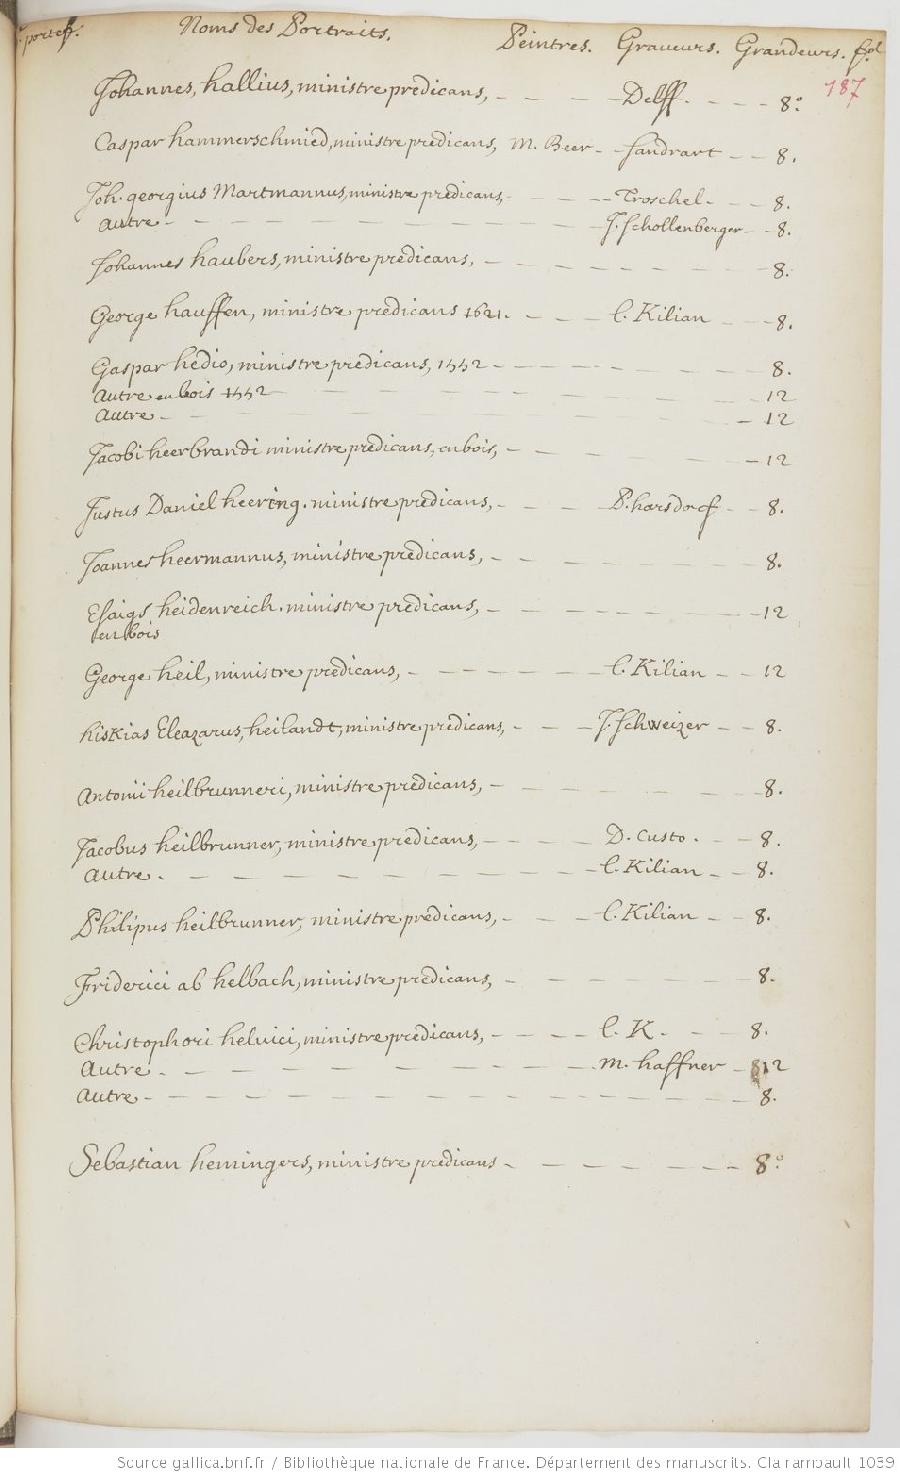 portef. Noms des Portraits. Peintres. Graveurs. Grandeurs. fol
187
Johannes, hallius, ministre predicans, Delff. 8º
Caspar hammerschmied, ministre predicans, M. Beer Sandrart 8.
Joh. georgius Martmannus, ministre predicans Troschel 8.
autre J. Schollenberger 8.
Johannes haubers, ministre predicans, 8.
George hauffen, ministre predicans 1621. l. Kilian 8.
Gaspar hedio, ministre predicans, 1552 8.
autre en bois 1552 12
autre 12
Jacobi heerbrandi ministre predicans, en bois, 12
Justus Daniel heering, ministre predicans, P. harsdorf 8.
Joannes heermannus, ministre predicans, 8.
Esaigs heidenreich, ministre predicans, 12
en bois
George heil, ministre predicans, l. Kilian 12
hiskias Eleazarus, heilandt, ministre predicans, J. Schweizer 8.
Antonii heilbrunneri, ministre predicans, 8.
Jacobus heilbrunner, ministre predicans, D. Custo. 8.
autre. l. Kilian 8.
Philipus heilbrunner, ministre predicans, l. Kilian 8.
Friderici ab helbach, ministre predicans, 8.
Christophori helvici, ministre predicans, l. K. 8.
autre. m. haffner 12
autre 8.
Sebastian hemingers, ministre predicans 8º
Source gallica.bnf.fr / Bibliothèque nationale de France. Département des manuscrits. Clairambault 1039